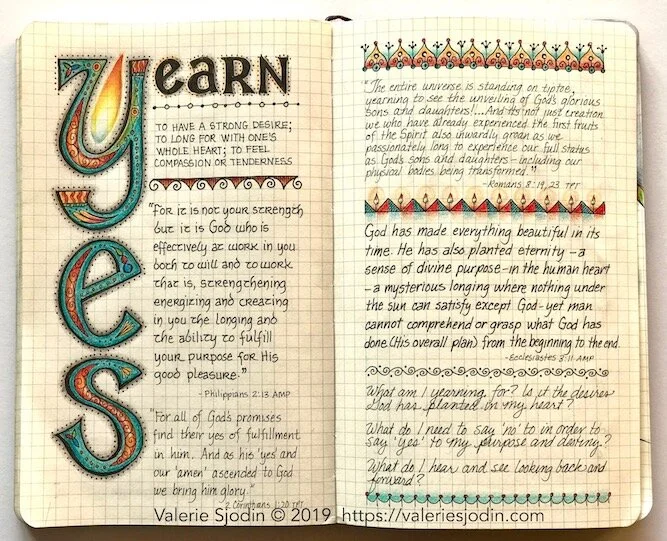 yes
earn
TO HAVE A STRONG DESIRE;
TO LONG FOR WITH ONE'S
WHOLE HEART; TO FEEL
COMPASSION OR TENDERNESS
"For it is not your strength
but it is God who is
effectively at work in you
both to will and to work
that is, strengthening
energizing and creating
in you the longing and
the ability to fulfill
your purpose for His
good pleasure."
- Philippians 2:13 AMP
"For all of God's promises
find their yes of fulfillment
in him. And as his 'yes' and
our 'amen' ascended to God
we bring him glory."
2 Corinthians 1:20 TPT
"The entire universe is standing on tiptoe,
yearning to see the unveiling of God's glorious
sons and daughters!...And it's not just creation.
we who have already experienced the first fruits
of the Spirit also inwardly groan as we
passionately long to experience our full status
as God's sons and daughters-including our
physical bodies being transformed."
-Romans 8:19,23 TPT
God has made everything beautiful in its
time. He has also planted eternity -a
sense of divine purpose-in the human heart
-a mysterious longing where nothing under
the sun can satisfy except God-yet man
cannot comprehend or grasp what God has
done (His overall plan) from the beginning to the end.
-Ecclesiastes 3:11 AMP
What am I yearning for? Is it the desires
God has planted in my heart?
What do I need to say 'no' to in order to
say 'yes' to my purpose and destiny?
What do I hear and see looking back and
forward?
Valerie Sjodin © 2019 https://valeriesjodin.com